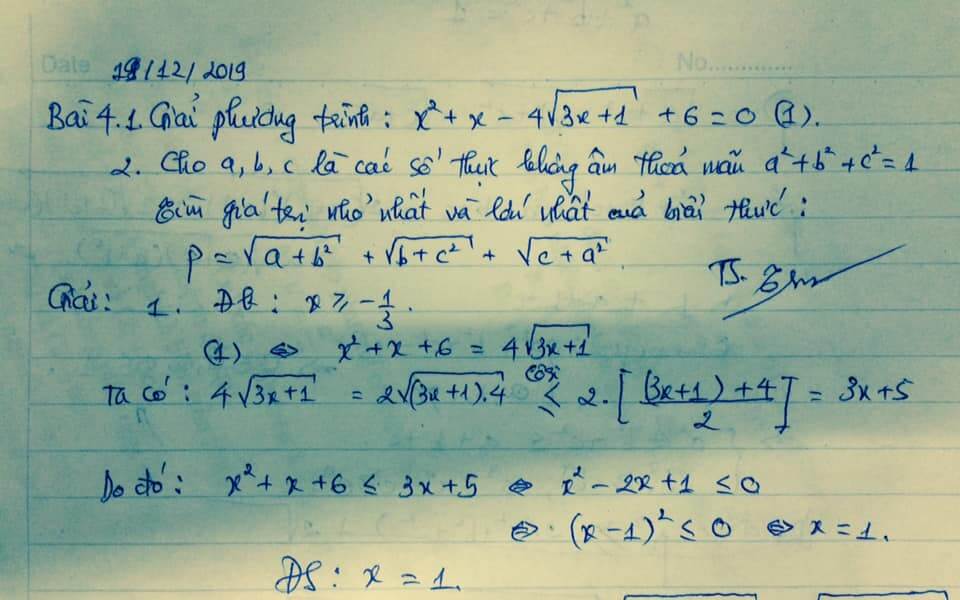 Date 19/12/2019 No.
Bài 4.1. Giải phương trình: x² + x - 4√(3x+1) + 6 = 0 (1).
2. Cho a, b, c là các số thực không âm thoả mãn a² + b² + c² = 1
Tìm giá trị nhỏ nhất và lớn nhất của biểu thức:
P = √(a + b²) + √(b + c²) + √(c + a²)
TS.
Giải: 1. ĐK: x ≥ -1/3.
(1) ⇔ x² + x + 6 = 4√(3x+1)
Ta có: 4√(3x+1) = 2√((3x+1).4) ≤ 2.[((3x+1)+4)/2] = 3x+5
Côsi
Do đó: x² + x + 6 ≤ 3x + 5 ⇔ x² - 2x + 1 ≤ 0
⇔ (x-1)² ≤ 0 ⇔ x = 1.
ĐS: x = 1.